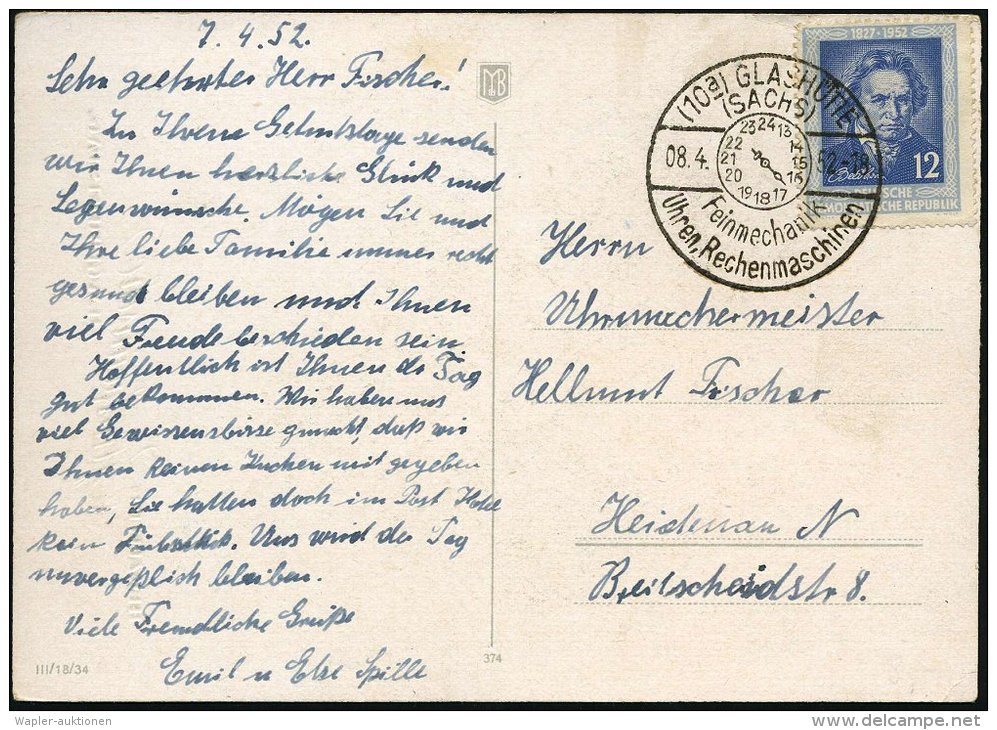 7.4.52.
Sehr geehrter Herr Fischer!
Zu Ihrem Geburtstage senden
wir Ihnen herzliche Glück und
Segenwünsche. Mögen Sie und
Ihre liebe Familie immer recht
gesund bleiben und Ihnen
viel Freude beschieden sein
Hoffentlich ist Ihnen de Tag
gut bekommen. Wir haben uns
viel Gewissensbisse gemacht, daß wir
Ihnen keinen Kuchen mit gegeben
haben, Sie hatten doch im Post Hotel
kein Frühstück. Uns wird der Tag
unvergeßlich bleiben.
Viele Freundliche Grüße
Emil u Else Spille
III/18/34
374
MB
1827·1952
12
DEUTSCHE
DEMOKRATISCHE REPUBLIK
(10a) GLASHÜTTE
(SACHS)
08.4.
52-18
23 24 13
22 14
21 15
20 16
19 18 17
Feinmechanik
Uhren, Rechenmaschinen
Herrn
Uhrmachermeister
Hellmut Fischer
Heidenau N
Breitscheidstr 8.
Wapler-auktionen
delcampe.net